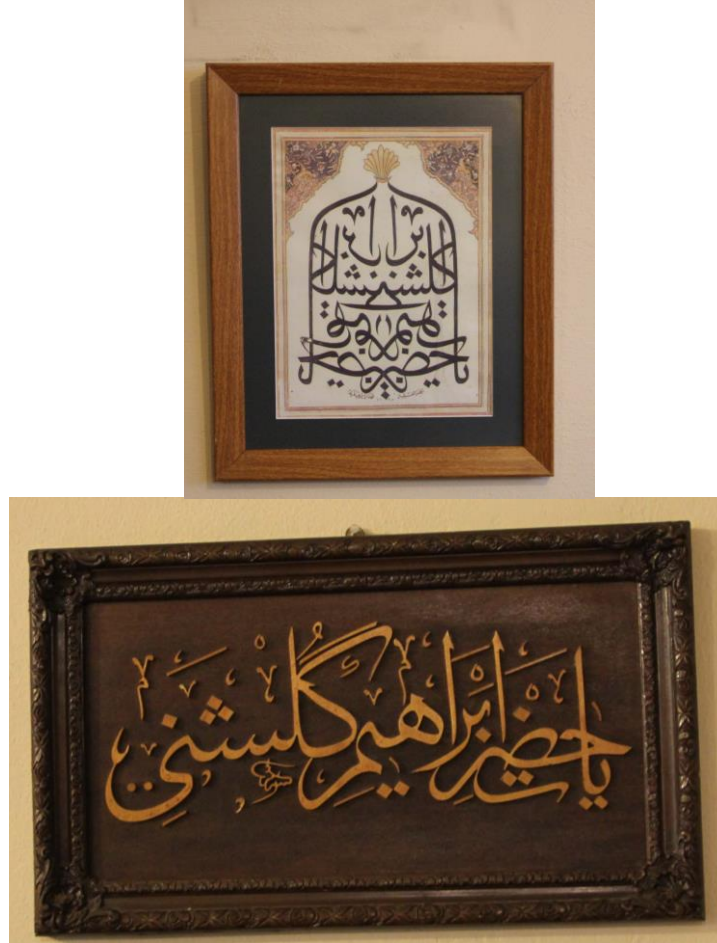 يا حضرت
ابراهيم
گلشنى
يا حضرت ابراهيم گلشنى